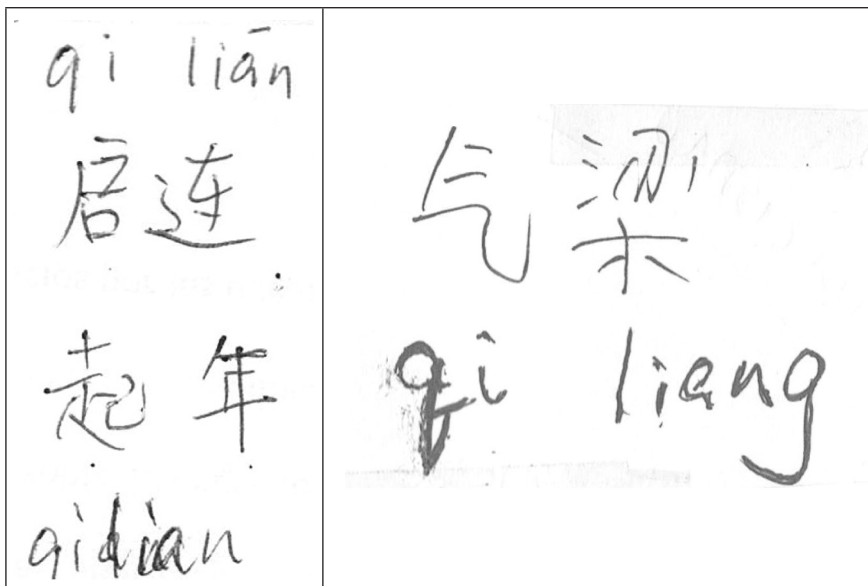 qi liān
启连
起年
qilian
气梁
qi liang